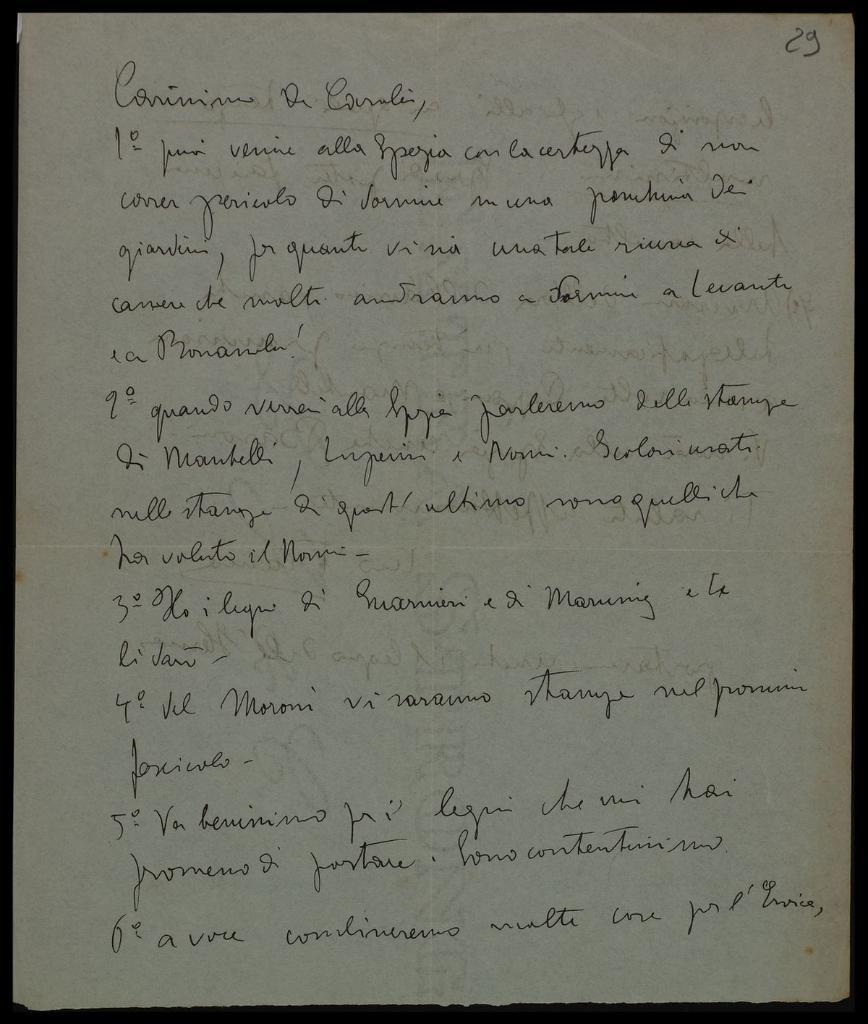 29
Carissimo De Carolis,
1º puoi venire alla Spezia con la certezza di non
correr pericolo di dormire in una panchina dei
giardini, per quanto vi sia una tale ricerca di
camere che molti andranno a dormire a Levante
e a Bonassola!
2º quando verrai alla Spezia parleremo delle stampe
di Mantelli, Luperini e Nomi. I colori usati
nelle stampe di quest'ultimo sono quelli che
ha voluto il Nomi –
3º Ho i legni di Guarnieri e di Marussig e te
li darò –
4º del Moroni vi saranno stampe nel prossimo
fascicolo –
5º Va benissimo per i legni che mi hai
promesso di portare. Sono contentissimo.
6º a voce combineremo molte cose per l'Eroica,